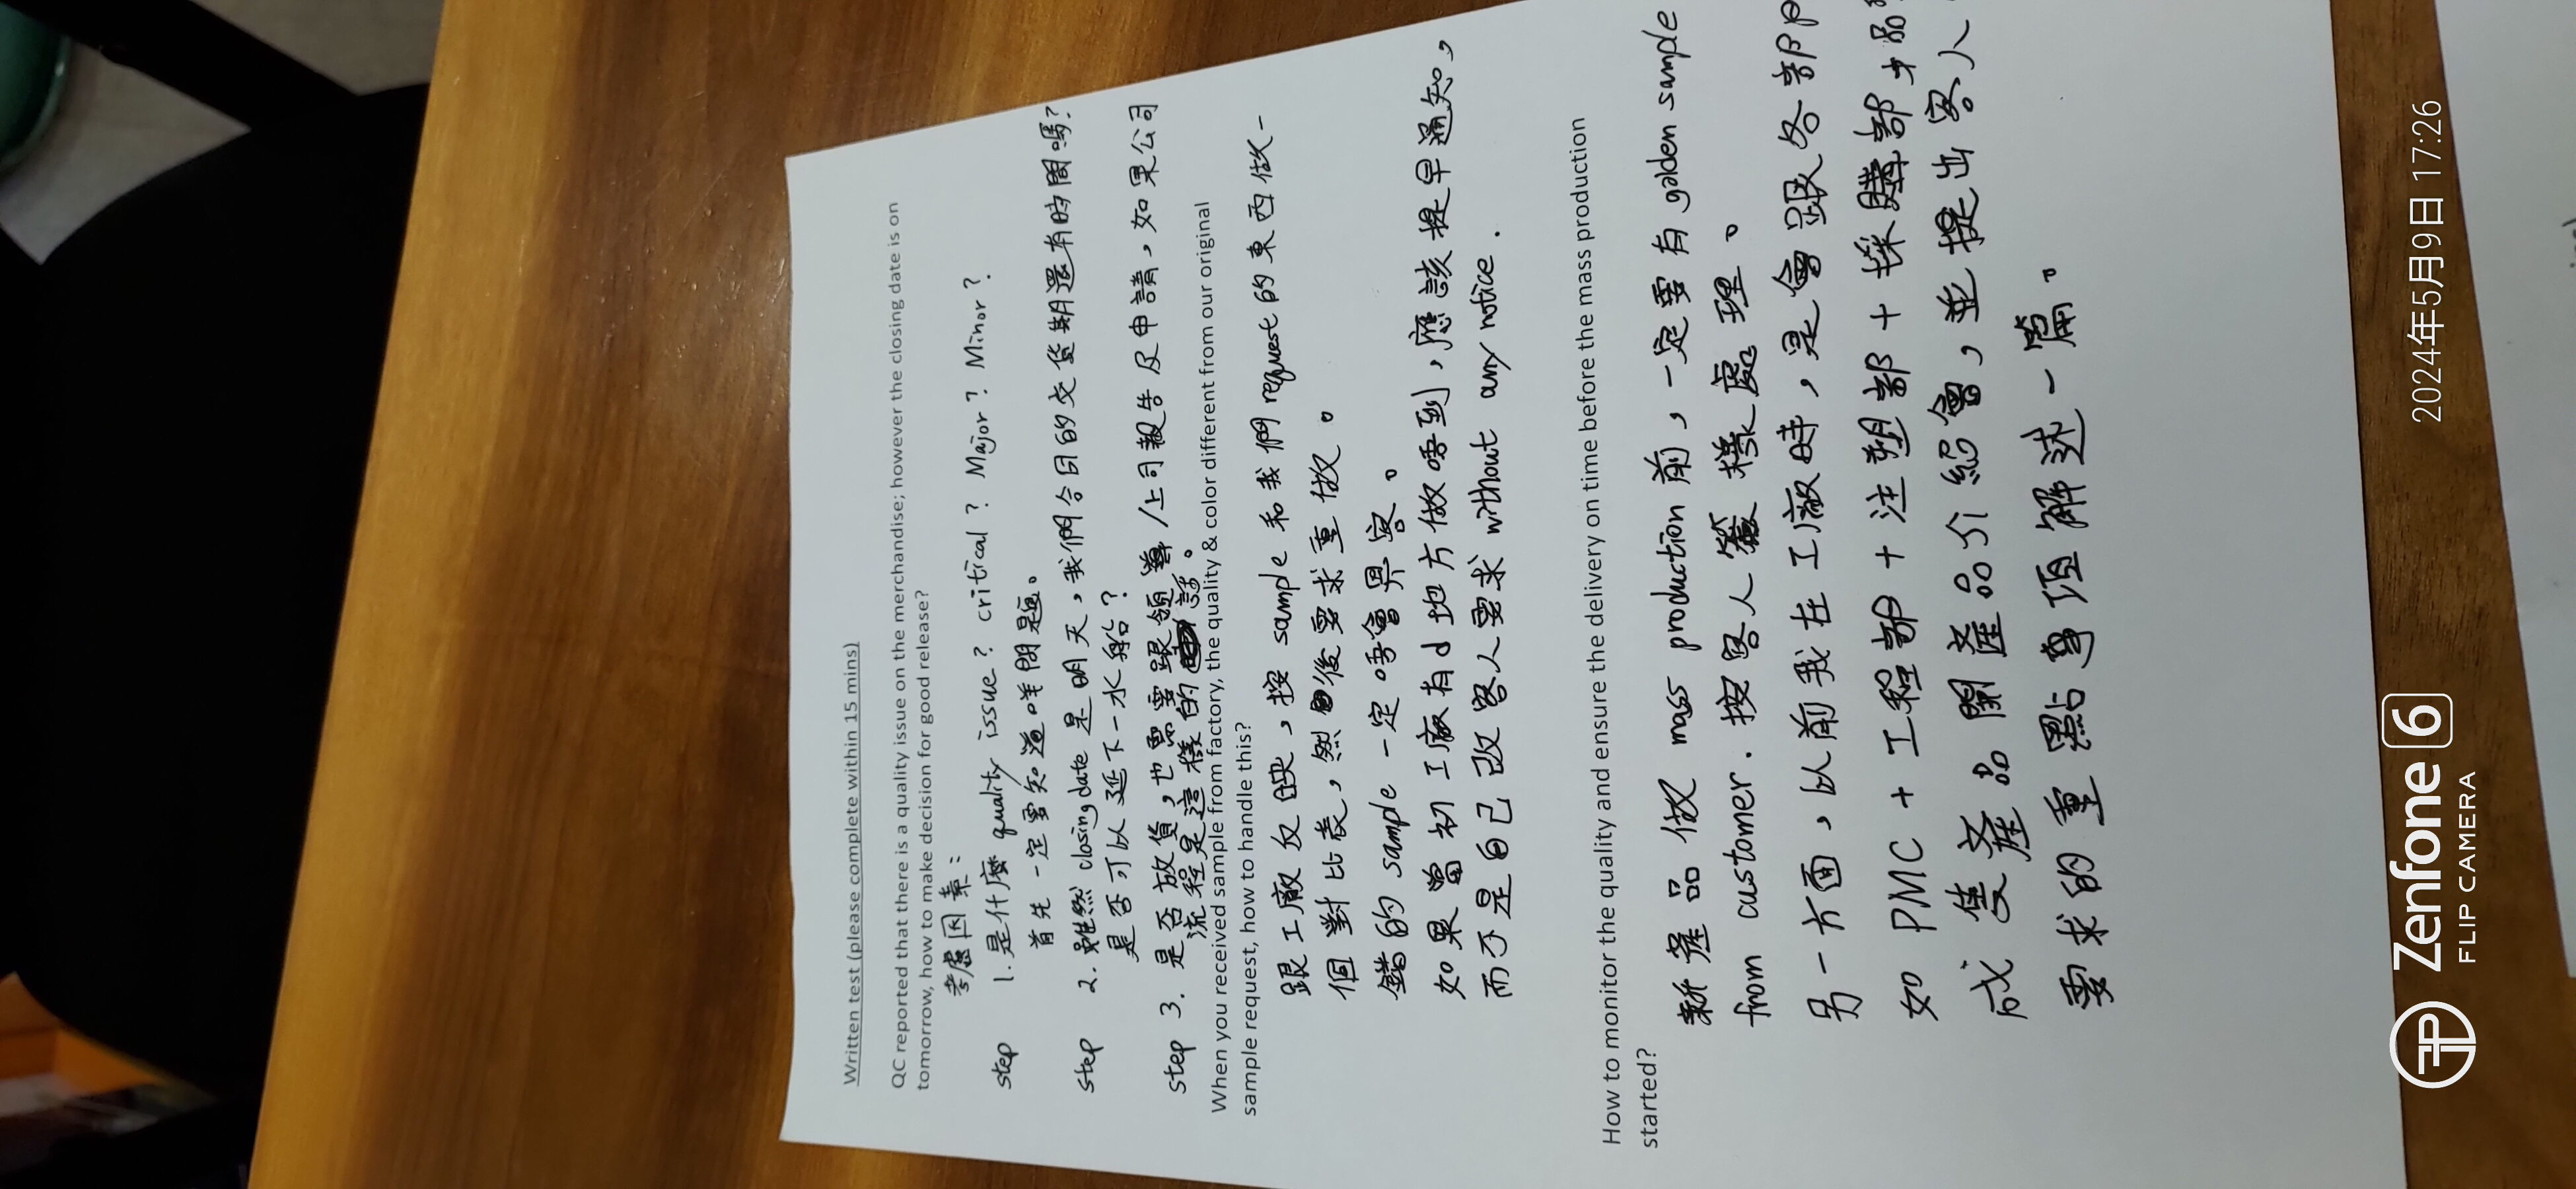 Written test (please complete within 15 mins)
QC reported that there is a quality issue on the merchandise; however the closing date is on
tomorrow, how to make decision for good release?
考慮因素：
step 1. 是什麼 quality issue? critical? Major? Minor?
首先一定要知道咩問題。
step 2. 雖然 closing date 是明天，我們今日的交貨期還有時間嗎?
是否可以延下一水船?
step 3. 是否放貨，也需要跟領導/上司報告及申請，如果公司
流程是這樣的話。
When you received sample from factory, the quality & color different from our original
sample request, how to handle this?
跟工廠反映，按 sample 和我們 request 的東西做一
個對比表，然後要求重做。
錯的 sample 一定唔會畀客。
如果當初工廠有d地方做唔到，應該提早通知，
而不是自己改客人要求 without any notice.
How to monitor the quality and ensure the delivery on time before the mass production
started?
新產品做 mass production 前，一定要有 golden sample
from customer. 按客人簽樣處理。
另一方面，以前我在工廠時，是會跟各部門
如 PMC + 工程部 + 注塑部 + 採購部 + 品
成隻產品開產品介紹會，並提出客人
要求的重點事項解述一篇。
2024年5月9日 17:26
Zenfone 6
FLIP CAMERA